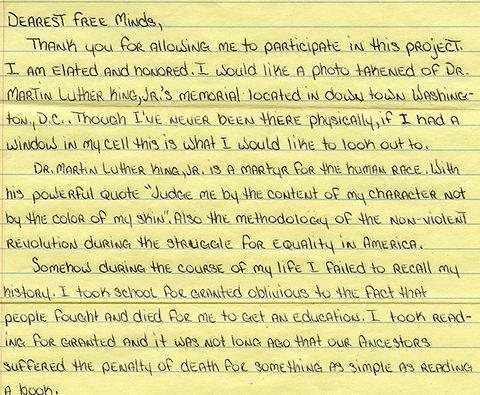 Dearest Free Minds,
Thank you for allowing me to participate in this project.
I am elated and honored. I would like a photo takened of Dr.
Martin Luther King, Jr.'s memorial located in down town Washing-
ton, D.C.. Though I've never been there physically, if I had a
window in my cell this is what I would like to look out to.
Dr. Martin Luther King, Jr. is a martyr for the human race. With
his powerful quote "Judge me by the content of my character not
by the color of my skin". Also the methodology of the non-violent
revolution during the struggle for equality in America.
Somehow during the course of my life I failed to recall my
history. I took school for granted oblivious to the fact that
people fought and died for me to get an education. I took read-
ing for granted and it was not long ago that our ancestors
suffered the penalty of death for something as simple as reading
a book.